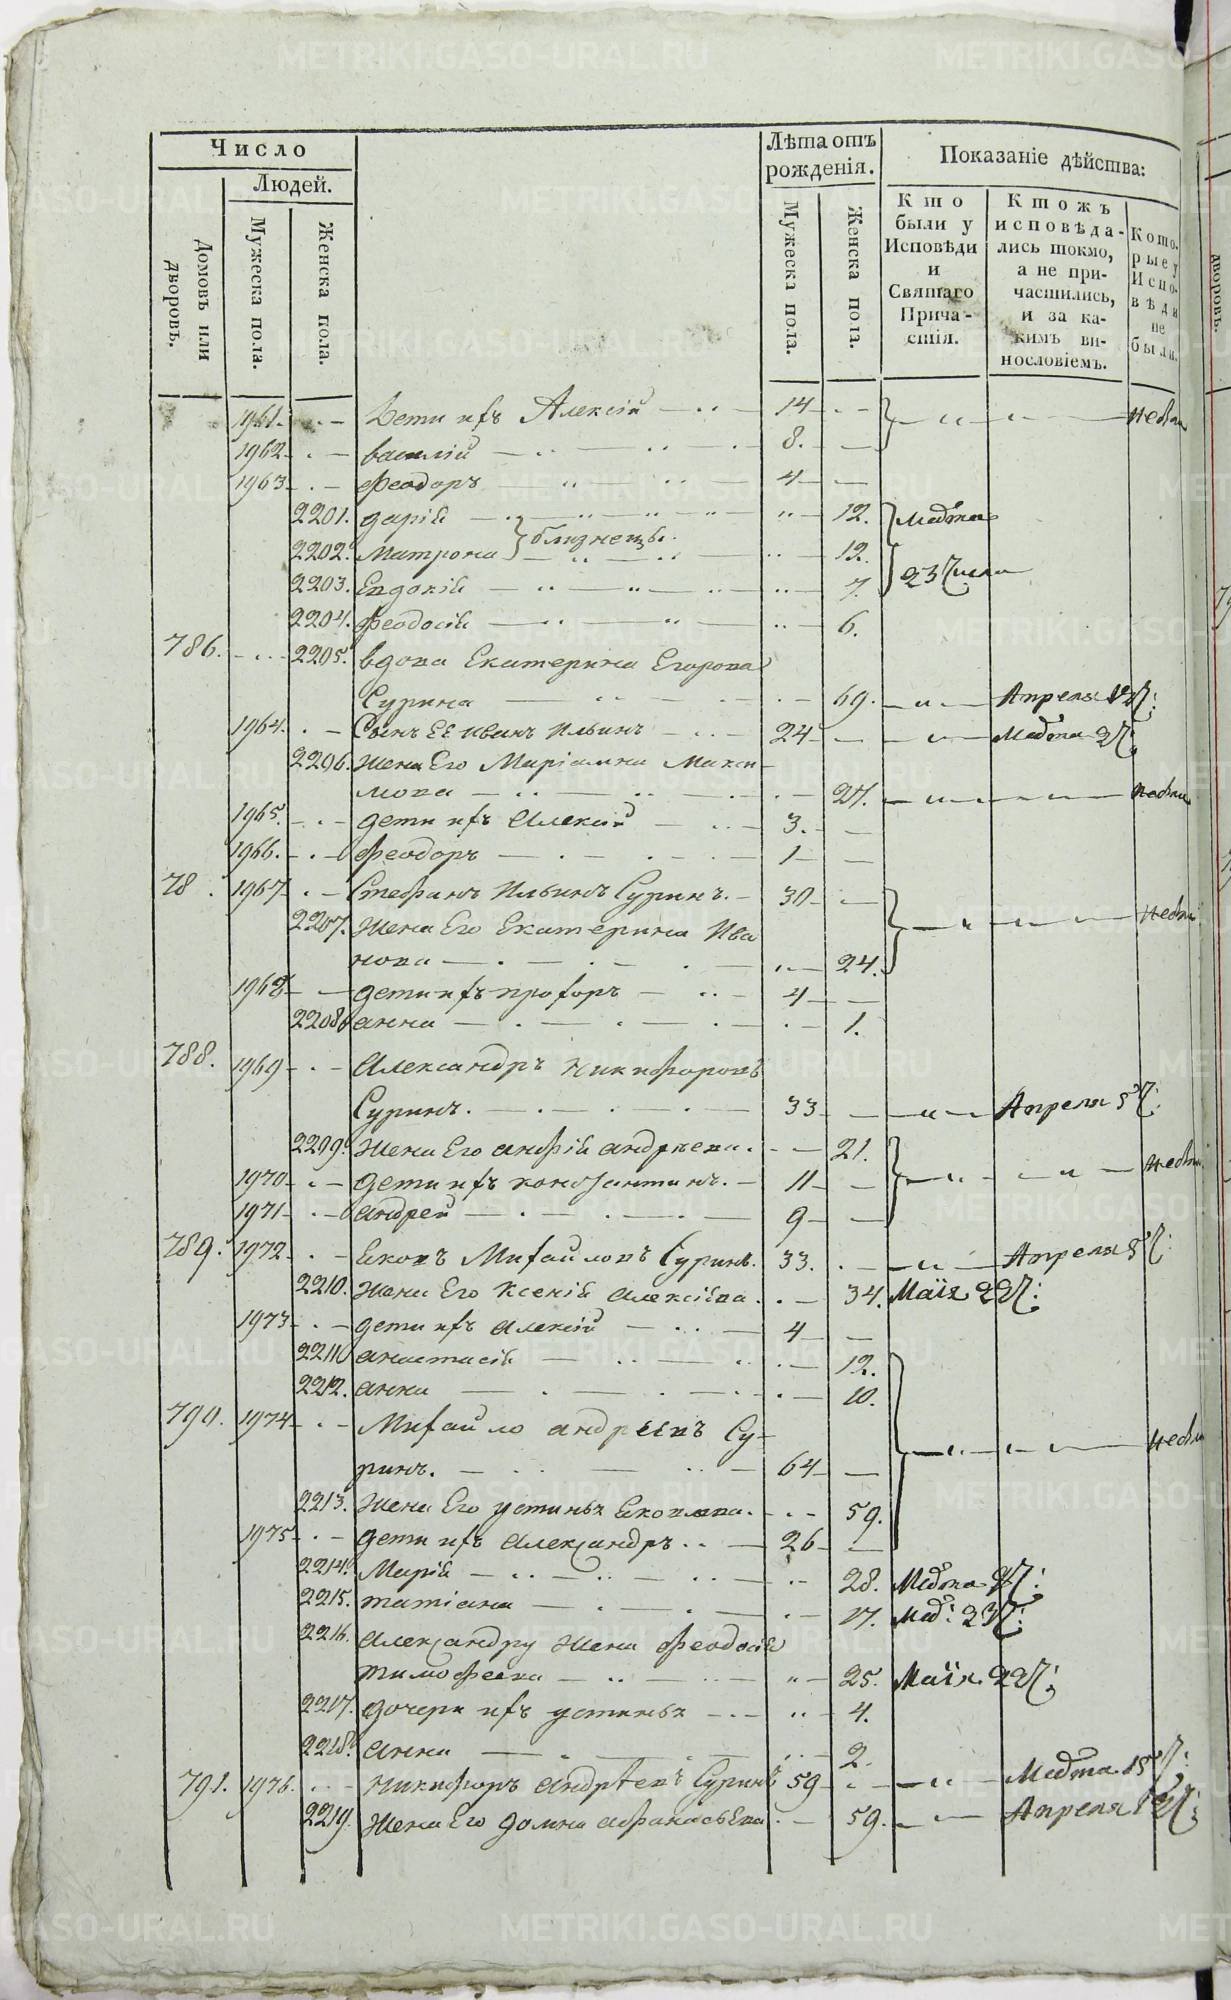 Число
Людей.
Домовъ или дворовъ.
Мужеска пола.
Женска пола.
Лѣта отъ рожденія.
Мужеска пола.
Женска пола.
Показаніе дѣйства:
Кто были у Исповѣди и Святаго Причастія.
Ктожъ исповѣдались токмо, а не причастились, и за какимъ винословіемъ.
Которые у Исповѣди не были.
1961. Дети ихъ Алексій 14
1962 василій 8.
1963 Феодоръ 4
2201. дарія 12. Марта
близнецы.
2202. Матрона 12.
2203. Евдокія 7. 23 числа
2204. Феодосія 6.
786. 2205. вдова Екатерина Егорова
Сурина 69. Апреля
1964. Сынъ Ее иванъ Ильинъ 24 Марта
2206. жена Его Маріамна Макси
мова 27.
1965. дети ихъ Алексій 3.
1966. Феодоръ 1
78 . 1967 Стефанъ Ильинъ Суринъ. 30
2207. Жена Его Екатерина Ива
нова 24.
1968 дети ихъ прохоръ 4
2208 анна 1.
788. 1969 Александръ Никифоровъ
Суринъ. 33 Апреля
2209. Жена Его андреева. 21.
1970 дети ихъ константинъ. 11
1971 андрей 9
789. 1972 Яковъ Михайловъ Суринъ. 33. Апреля
2210. Жена Его Ксенія алексіева. 34. Маія 22
1973 дети ихъ алексій 4
2211 анастасія 12.
2212. анна 10.
790. 1974 Михайло андреевъ Су-
ринъ. 64
2213. Жена Его устинья Яковлева. 59.
1975 дети ихъ Александръ 26
2214. Марія 28. Марта
2215. татіана 17. Мар: 23
2216. Александру жена Феодосія
тимофеева 25. Маія 22
2217. дочери ихъ устинья 4.
2218. анна 2.
791. 1976. никифоръ андреевъ Суринъ 59 Марта
2219. Жена Его домна афанасьева 59. Апреля
METRIKI.GASO-URAL.RU